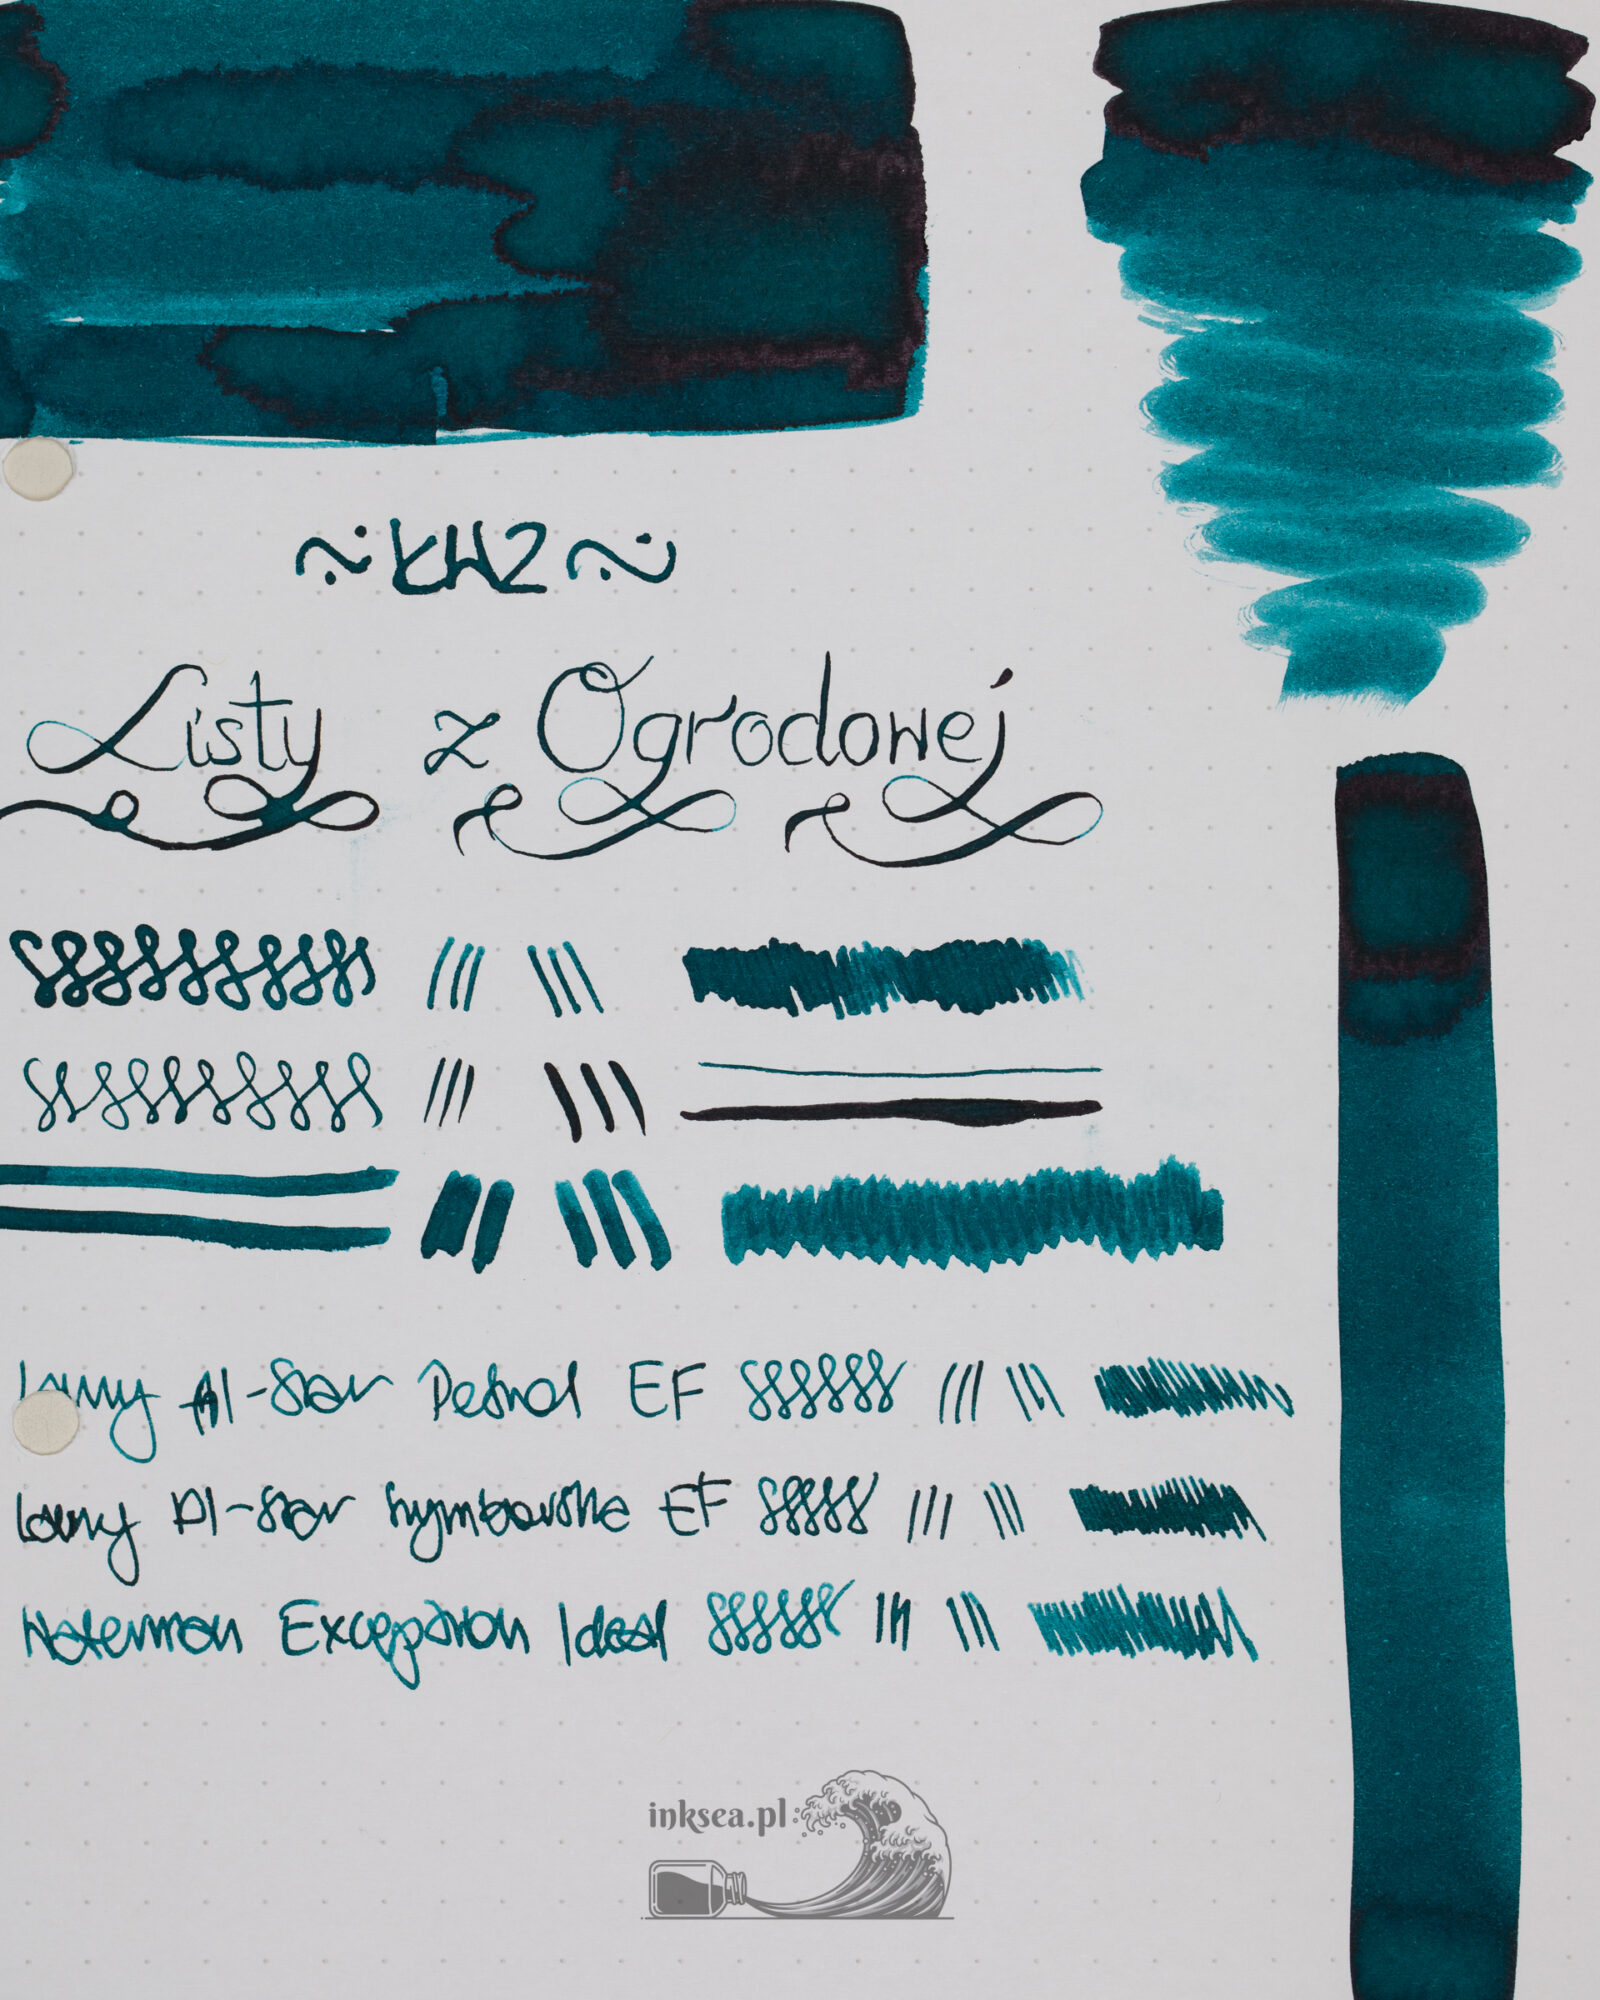 ~ KWZ ~
Listy z Ogrodowej
Lamy Al-Star Petrol EF
Lamy Al-Star Szymborska EF
Waterman Exception Ideal
inksea.pl